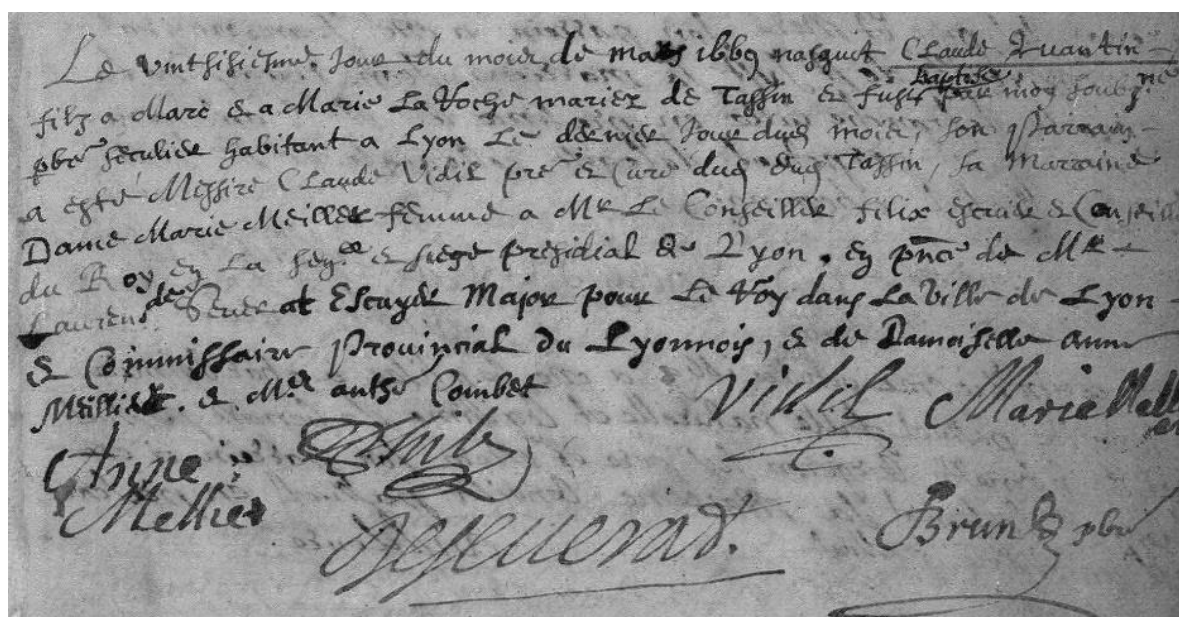 Le vinthisiesme Jour du mois de mars 1669 nasquit Claude Quantin
filz a Marc & a Marie La Roche mariez de Tassin & fust baptisé par moy soubz.né
pbre seculier habitant a Lyon Le dernier Jour dud moier, son parrain
a esté Messire Claude Vidil pre & Curé dud Tassin, sa marraine
Dame Marie Meillier femme a Mr Le Conseiller filix escuier & Conseille
du Roy en La sen.ee & siege presidial de Lyon, en pnce de Mr
Laurens de Seuerat Escuyer Major pour Le Roy dans La Ville de Lyon
& Commissaire Provincial du Lyonnois, & de Damoiselle anne
Meillier. & Mr anthe Combet
Vidil Marie Mell
Anne
Mellier
DeSeuerat.
Brun pbre